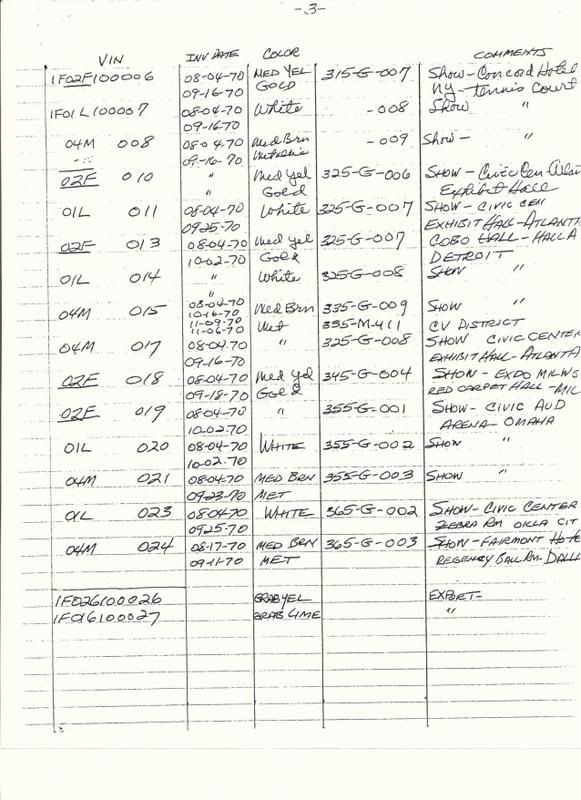 -3-
VIN INV DATE COLOR COMMENTS
1F02F100006 08-04-70 MED YEL 315-G-007 Show-Concord Hotel
09-16-70 GOLD NY-tennis Court
1F01L100007 08-04-70 White -008 Show "
09-16-70
04M 008 08-04-70 Med Brn -009 Show- "
09-16-70 Metallic
02F 010 " Med Yel 325-G-006 SHOW-Civic Cen
" Gold Exhibit Hall
01L 011 08-04-70 White 325-G-007 SHOW-CIVIC CEN
09-25-70 EXHIBIT HALL-ATLANTA
02F 013 08-04-70 Med Yel 325-G-007 COBO HALL-HALL A
10-02-70 Gold DETROIT
01L 014 " White 325-G-008 SHOW "
"
04M 015 08-04-70 Med Brn 335-G-009 SHOW "
10-16-70
11-09-70 Met 335-M-411 CV DISTRICT
11-06-70
04M 017 08-04-70 " 325-G-008 SHOW CIVIC CENTER
09-16-70 EXHIBIT HALL-ATLANTA
02F 018 08-04-70 Med Yel 345-G-004 SHOW-EXPO MILWS
09-18-70 Gold RED CARPET HALL-MIL
02F 019 08-04-70 " 355-G-001 SHOW-CIVIC AUD
10-02-70 ARENA-OMAHA
01L 020 08-04-70 WHITE 355-G-002 SHOW "
10-02-70
04M 021 08-04-70 MED BRN 355-G-003 SHOW "
09-23-70 MET
01L 023 08-04-70 WHITE 365-G-002 SHOW-CIVIC CENTER
09-25-70 ZEBRA RM OKLA CIT
04M 024 08-17-70 MED BRN 365-G-003 SHOW-FAIRMONT Hote
09-11-70 MET REGENCY BALL RM-DALL
1F02G100026 GRAB YEL EXPORT-
1F01G100027 GRAB LIME "